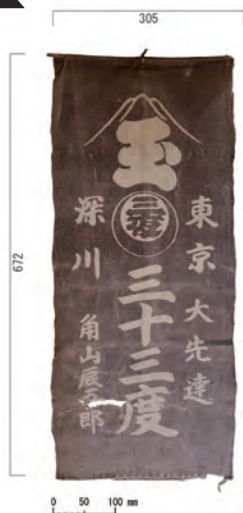 305
672
玉
東京 大先達
三十三度
深川 角山辰五郎
0 50 100 mm